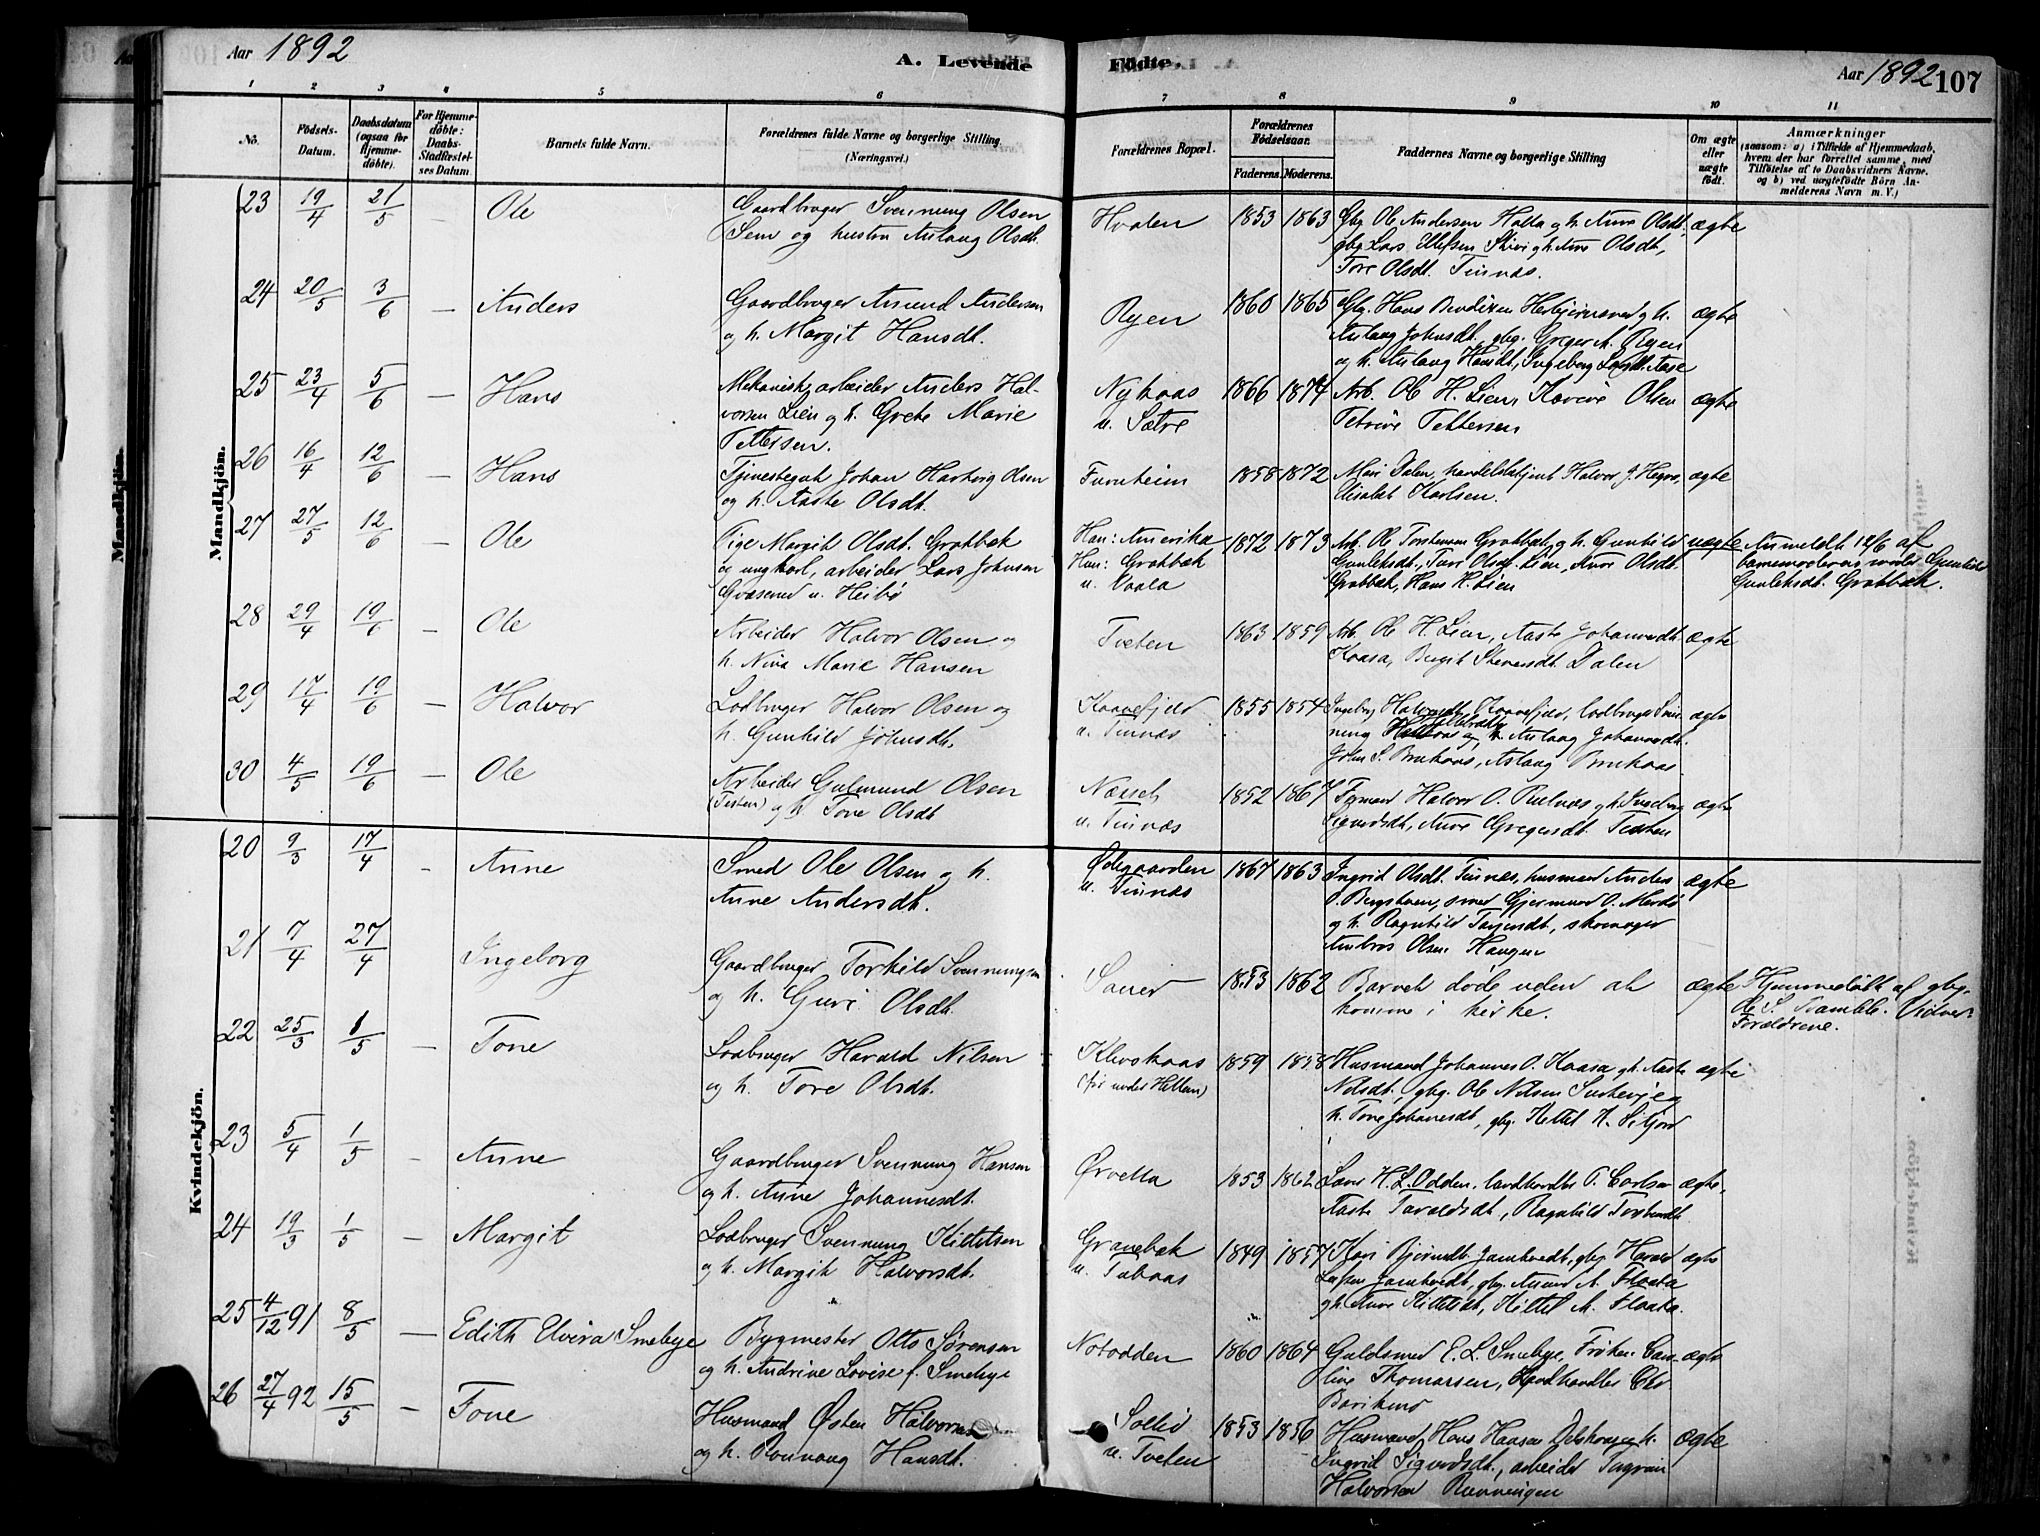 Aar 1892
A. Levende Födte.
Aar 1892 107
1 2 3 4 5 6 7 8 9 10 11
No.
Födsels-Datum.
Daabsdatum (ogsaa for Hjemmedöbte).
For Hjemmedöbte: Daabs-Stadfæstelses Datum.
Barnets fulde Navn.
Forældrenes fulde Navne og borgerlige Stilling (Næringsvei.)
Forældrenes Bopæl.
Forældrenes Födselsaar.
Faderens. Moderens.
Faddernes Navne og borgerlige Stilling
Om ægte eller uægte födt.
Anmærkninger
(saasom: a) i Tilfælde af Hjemmedaab, hvem der har forrettet samme, med Tilföielse af to Daabsvidners Navne. og b) ved uægtefödte Börn Anmelderens Navn m. V.)
Mandkjön.
23 19/4 21/5 – Ole
Gaardbruger Svennung Olsen
Sem og hustru Aslaug Olsdt.
Hvalen 1853 1863
Gbg. Ole Andersen Halla og h. Anne Olsdt. ægte
gbg. Lars Ellefsen Skivi og h. Anne Olsdt,
Tore Olsdt. Tinnæs.
24 20/5 3/6 – Anders
Gaardbruger Amund Andersen
og h. Margit Hansdt.
Ryen 1860 1865
Gbg. Hans Bendixen Hesbjørnsrud og h. ægte
Aslaug Johnsdt. gbg. Greger A. Ryen
og h. Aslaug Hansdt, Ingeborg Aase
25 23/4 5/6 – Hans
Mekanisk arbeider Anders Hal-
vorsen Lien og h. Grete Marie
Pettersen.
Nykaas
u. Sætre
1866 1874
Arb. Ole H. Lien, Olsen ægte
Petrine Pettersen
26 16/4 12/6 – Hans
Tjenestegut Johan Olsen
og h. Aaste Olsdt.
Furuheim 1858 1872
Mari Dalen, handelsbetjent Halvor J. ægte
Elisabet Karlsen.
27 27/5 12/6 – Ole
Pige Margit Olsdt. Grotbæk
og ungkarl, arbeider Lars Johnsen
u. Heibø
Han: Amerika
Hun: Grotbæk
u. Vaala
1872 1873
Arb. Ole Torstensen Grotbæk og h. Gunhild uægte
Gunleksdt., Turi Olsdt. Lien, Anne Olsdt.
Grotbæk, Hans H. Lien
Anmeldt 12/6 af
barnemoderens moder Gunhild
Gunleksdt. Grotbæk.
28 29/4 19/6 – Ole
Arbeider Halvor Olsen og
h. Nina Marie Hansen
Tveten 1863 1859
Arb. Ole H. Lien, Aaste Johannesdt. ægte
Kaasa, Birgit Stevensdt. Dalen
29 17/4 19/6 – Halvor
Lodbruger Halvor Olsen og
h. Gunhild Johnsdt.
Kaavefjeld
u. Tinnæs
1855 1854
Ingeborg Halvorsdt. Kaavefjeld, lodbruger Sven- ægte
nung og h. Aslaug Johannesdt.
John S. Brukaas, Aslaug Brukaas.
30 4/5 19/6 – Ole
Arbeider Gulmund Olsen
(Testen) og h. Tone Olsdt
Næset
u. Tinnæs
1852 1867
Halvor O. og h. Ingeborg ægte
Sigurdsdt, Anne Gregersdt. Testen
Kvindekjön.
20 9/3 17/4 – Anne
Smed Ole Olsen og h.
Anne Andersdt.
Ødegaarden
u. Tinnæs
1867 1863
Ingrid Olsdt. Tinnæs, husmand Anders ægte
O. Berghaven, smed Gjermund O.
og h. Ragnhild Tarjeisdt, skomager
Ambros Olsen Haugen
21 7/4 27/4 Ingeborg
Gaardbruger Torkild Svennungsen
og h. Guri Olsdt.
Sauer 1853 1862
Barnet døde uden at ægte
komme i kirke.
Hjemmedøbt af gbg.
Ole S. Tramble. Vidner:
Forældrene.
22 25/3 1/5 – Tone
Lodbruger Harald Nilsen
og h. Tore Olsdt.
Klevkaas
1859 1858
Husmand Johannes O. Kaasa og h. Aaste ægte
Nilsdt, gbg. Ole Nilsen
h. Tone Johannesdt, gbg. Kittel K.
23 5/4 1/5 – Anne
Gaardbruger Svennung Hansen
og h. Anne Johannesdt.
Ørvella 1853 1862
Lars H. L. Odden, landhandler O. Carlsen ægte,
Aaste Taraldsdt, Ragnhild
24 19/3 1/5 – Margit
Lodbruger Svennung Kittelsen
og h. Margit Halvorsdt.
Granebæk
u.
1849 1857
Kari Bjørnsdt. Jamtveit, gbg. Harald ægte
Jamtveit, gbg. Amund A. Flaata
og h. Anne Kittilsdt, Kittel A. Flaata.
25 4/12 91 8/5 – Edith Elvira Smebye
Bygmester Otto Sørensen
og h. Andrine Lovise f. Smebye
Notodden 1860 1864
Guldsmed E. L. Smebye, Frøken ægte
Thomassen, Landhandler Chr
26 27/4 92 15/5 – Tone
Husmand Østen Halvorsen
og h. Rønnaug Hansdt.
Sollid
u. Tveten
1853 1856
Husmand Hans Hansen og h. ægte
Ingrid Sigurdsdt., arbeider
Halvorsen Rønningen